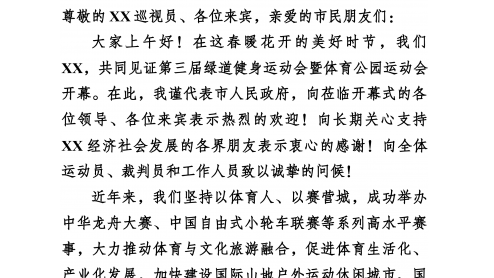 尊敬的 XX 巡视员、各位来宾，亲爱的市民朋友们：
大家上午好！在这春暖花开的美好时节，我们
XX，共同见证第三届绿道健身运动会暨体育公园运动会
开幕。在此，我谨代表市人民政府，向莅临开幕式的各
位领导、各位来宾表示热烈的欢迎！向长期关心支持
XX 经济社会发展的各界朋友表示衷心的感谢！向全体
运动员、裁判员和工作人员致以诚挚的问候！
近年来，我们坚持以体育人、以赛营城，成功举办
中华龙舟大赛、中国自由式小轮车联赛等系列高水平赛
事，大力推动体育与文化旅游融合，促进体育生活化、
产业化发展，加快建设国际山地户外运动休闲城市、国